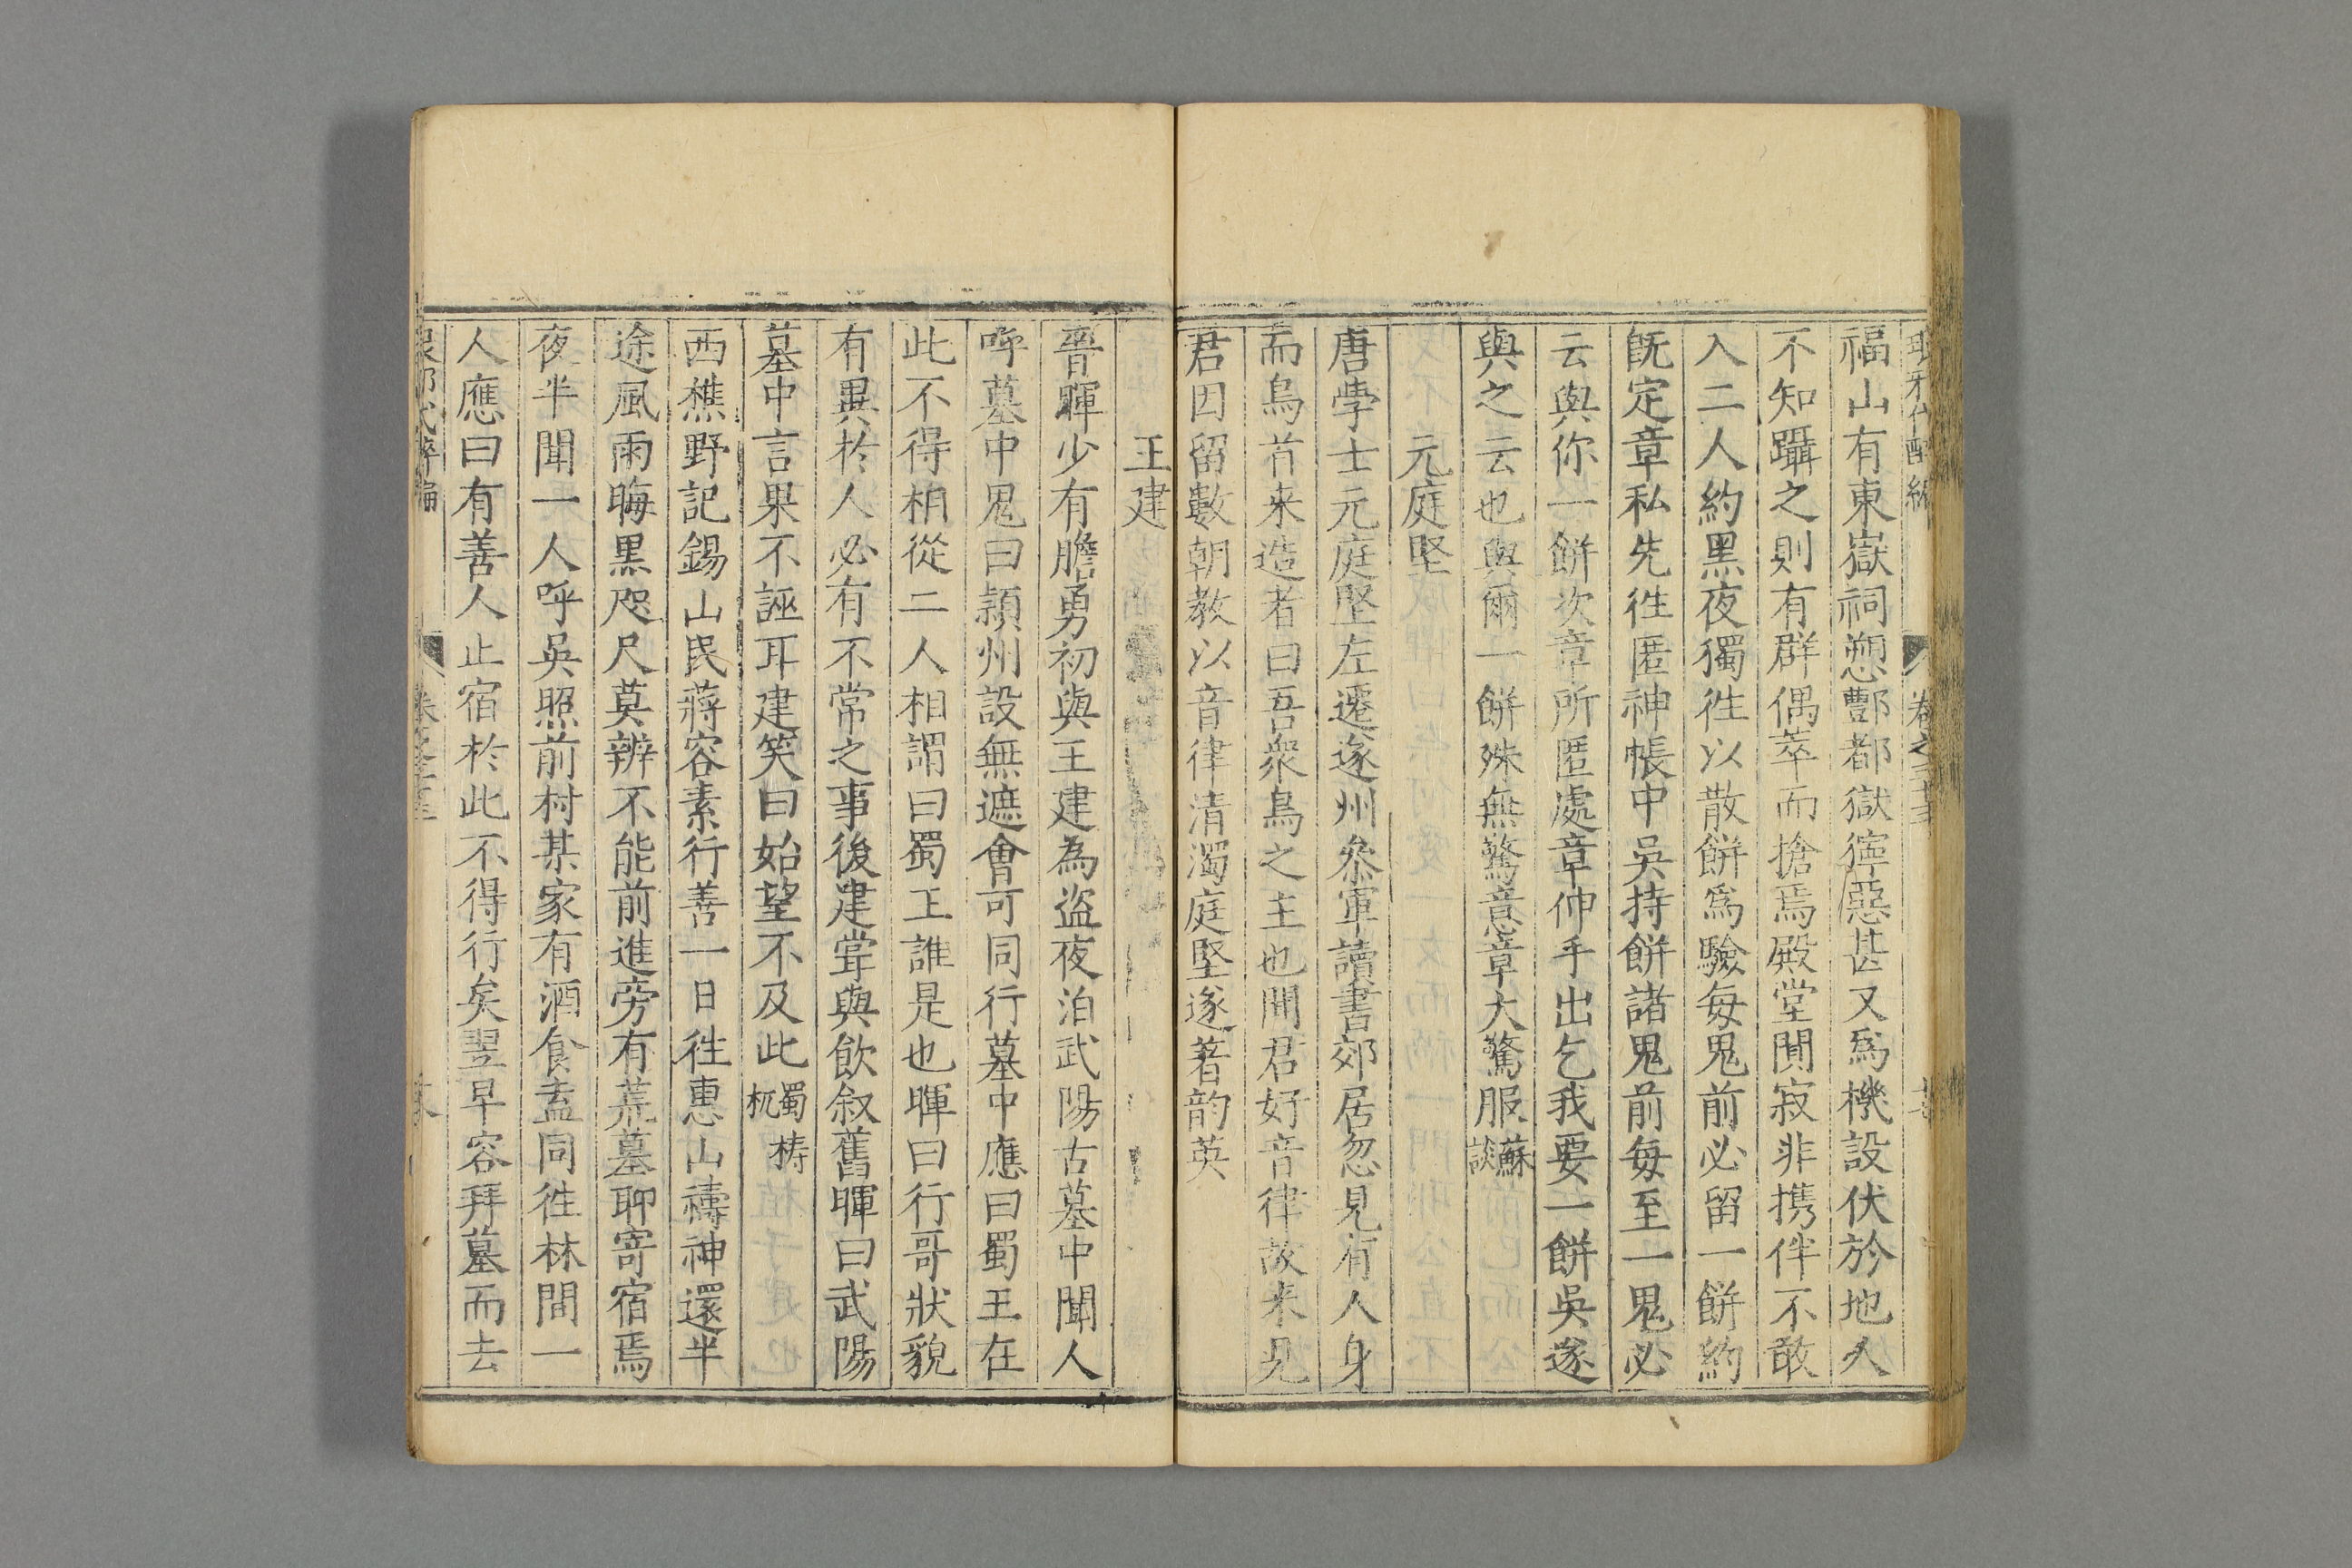 福山有東嶽祠塑酆都獄獰惡甚又爲機設伏於地人
不知躡之則有群偶萃而搶焉殿堂閴寂非携伴不敢
入二人約黑夜獨徃以散餅爲驗每鬼前必留一餅約
既定章私先徃匿神帳中吳持餅諸鬼前每至一鬼必
云與你一餅次章所匿處章伸手出乞我要一餅吳遂
與之云也與爾一餅殊無驚意章大驚服蘇談
元庭堅
唐學士元庭堅左遷遂州叅軍讀書郊居忽見有人身
而鳥首来造者曰吾衆鳥之主也聞君好音律故来見
君因留數朝教以音律清濁庭堅遂著韵英
王建
晉暉少有膽勇初與王建為盗夜泊武陽古墓中聞人
呼墓中鬼曰頴州設無遮會可同行墓中應曰蜀王在
此不得相從二人相謂曰蜀王誰是也暉曰行哥狀貌
有異於人必有不常之事後建嘗與飲叙舊暉曰武陽
墓中言果不誣耳建笑曰始望不及此蜀檮杌
西樵野記錫山民蔣容素行善一日徃惠山禱神還半
途風雨晦黒咫尺莫辨不能前進旁有荒墓聊寄宿焉
夜半聞一人呼吳照前村某家有酒食盍同徃林間一
人應曰有善人止宿於此不得行矣翌早容拜墓而去